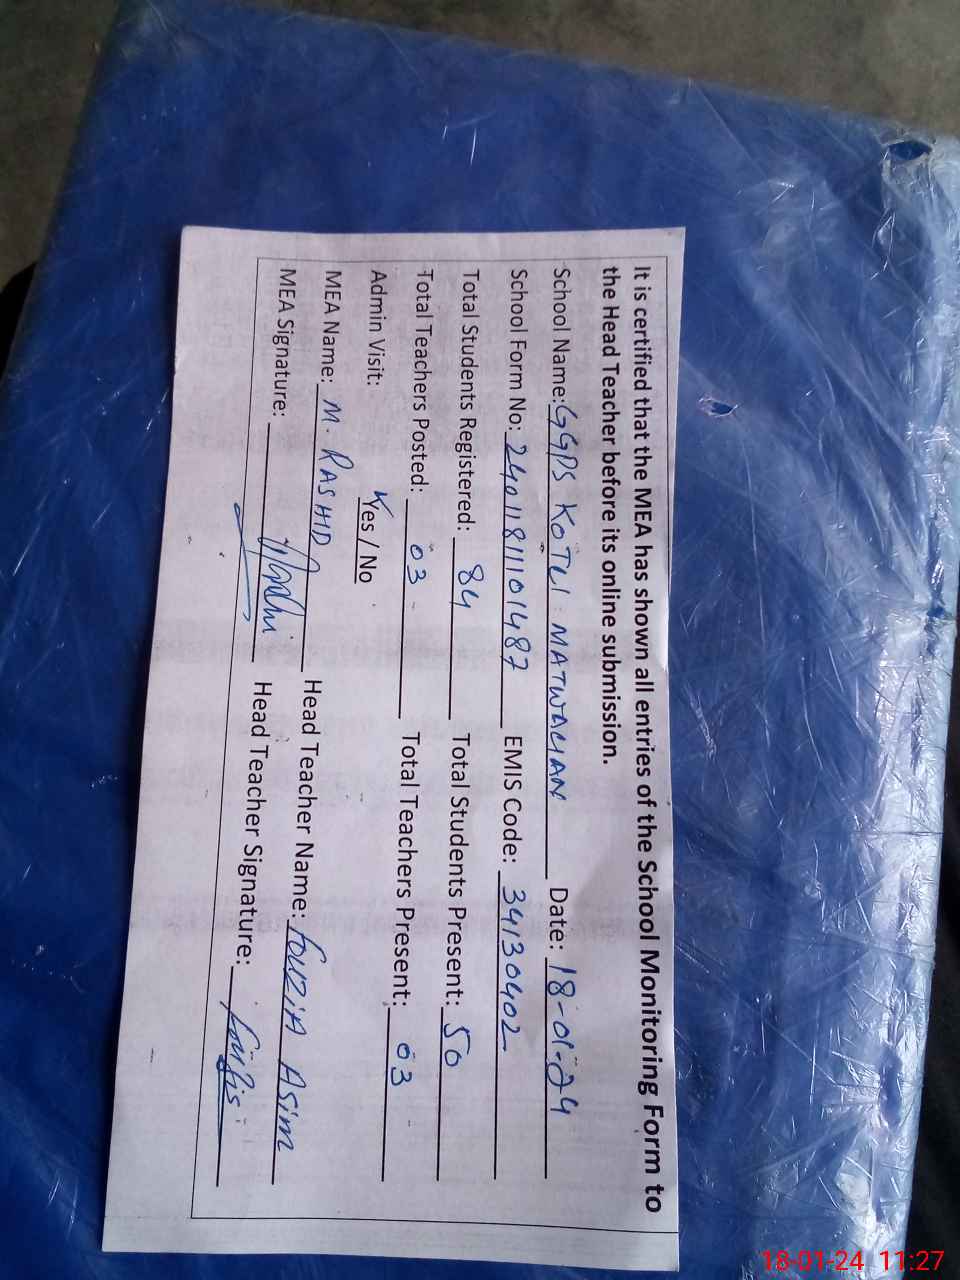 It is certified that the MEA has shown all entries of the School Monitoring Form to
the Head Teacher before its online submission.
School Name: GGPS KOTLI MATWALIAN Date: 18-01-24
School Form No: 24011811101487 EMIS Code: 34130402
Total Students Registered: 84 Total Students Present: 50
Total Teachers Posted: 03 Total Teachers Present: 03
Admin Visit: Yes / No
MEA Name: M. RASHID Head Teacher Name: fouziA Asim
MEA Signature: Head Teacher Signature:
18-01-24 11:27